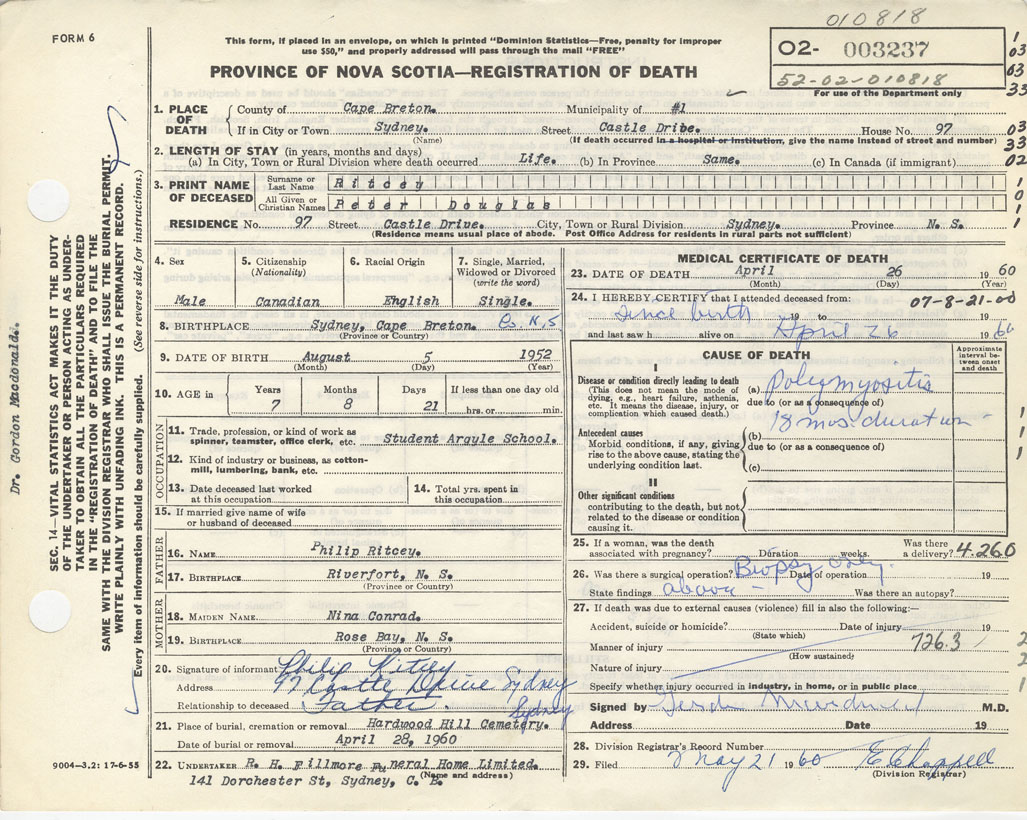 010818
FORM 6
This form, if placed in an envelope, on which is printed "Dominion Statistics—Free, penalty for improper
use $50," and properly addressed will pass through the mail "FREE"
PROVINCE OF NOVA SCOTIA—REGISTRATION OF DEATH
02- 003237
52-02-010818
For use of the Department only
1
03
63
33
1. PLACE OF DEATH
County of Cape Breton. Municipality of #1
If in City or Town Sydney. Street Castle Dribe. House No. 97
(Name) (If death occurred in a hospital or institution, give the name instead of street and number)
03
33
02
2. LENGTH OF STAY (in years, months and days)
(a) In City, Town or Rural Division where death occurred Life. (b) In Province Same. (c) In Canada (if immigrant)
3. PRINT NAME OF DECEASED
Surname or Last Name Ritcey
All Given or Christian Names Peter Douglas
1
0
1
1
RESIDENCE No. 97 Street Castle Drive. City, Town or Rural Division Sydney. Province N. S.
(Residence means usual place of abode. Post Office Address for residents in rural parts not sufficient)
4. Sex
Male
5. Citizenship (Nationality)
Canadian
6. Racial Origin
English
7. Single, Married, Widowed or Divorced (write the word)
Single.
8. BIRTHPLACE Sydney, Cape Breton. Co. N.S
(Province or Country)
9. DATE OF BIRTH August 5 1952
(Month) (Day) (Year)
10. AGE in
Years 7
Months 8
Days 21
If less than one day old
hrs. or min.
OCCUPATION
11. Trade, profession, or kind of work as spinner, teamster, office clerk, etc. Student Argyle School.
12. Kind of industry or business, as cotton-mill, lumbering, bank, etc.
13. Date deceased last worked at this occupation
14. Total yrs. spent in this occupation
15. If married give name of wife or husband of deceased
FATHER
16. NAME Philip Ritcey.
17. BIRTHPLACE Riverfort, N. S.
(Province or Country)
MOTHER
18. MAIDEN NAME Nina Conrad.
19. BIRTHPLACE Rose Bay, N. S.
(Province or Country)
20. Signature of informant Philip Ritcey
Address 97 Castle Drive Sydney
Relationship to deceased Father. Sydney
21. Place of burial, cremation or removal Hardwood Hill Cemetery.
Date of burial or removal April 28, 1960
22. UNDERTAKER R. H. Fillmore Funeral Home Limited.
(Name and address)
141 Dorchester St, Sydney, C. B.
9004-3.2: 17-6-55
MEDICAL CERTIFICATE OF DEATH
23. DATE OF DEATH April 26 1960
(Month) (Day) (Year)
24. I HEREBY CERTIFY that I attended deceased from: 07-8-21-00
since birth 19 to
and last saw h alive on April 26 1960
CAUSE OF DEATH
Approximate interval between onset and death
I
Disease or condition directly leading to death
(This does not mean the mode of dying, e.g., heart failure, asthenia, etc. It means the disease, injury, or complication which caused death.)
(a) polymyositis
due to (or as a consequence of)
18 mos. duration
Antecedent causes
Morbid conditions, if any, giving rise to the above cause, stating the underlying condition last.
(b)
due to (or as a consequence of)
(c)
1
1
1
II
Other significant conditions
contributing to the death, but not related to the disease or condition causing it.
25. If a woman, was the death associated with pregnancy? Duration weeks. Was there a delivery? 4.260
26. Was there a surgical operation? Biopsy only. Date of operation 19
State findings above - Was there an autopsy?
27. If death was due to external causes (violence) fill in also the following:—
Accident, suicide or homicide? Date of injury 19
(State which)
Manner of injury 726.3
(How sustained)
Nature of injury
Specify whether injury occurred in industry, in home, or in public place
2
2
1
Signed by M.D.
Address Date 19
28. Division Registrar's Record Number
29. Filed May 21 1960 E Chappell
(Division Registrar)
Dr. Gordon Macdonald.
SEC. 14—VITAL STATISTICS ACT MAKES IT THE DUTY
OF THE UNDERTAKER OR PERSON ACTING AS UNDER-
TAKER TO OBTAIN ALL THE PARTICULARS REQUIRED
IN THE "REGISTRATION OF DEATH" AND TO FILE THE
SAME WITH THE DIVISION REGISTRAR WHO SHALL ISSUE THE BURIAL PERMIT.
WRITE PLAINLY WITH UNFADING INK. THIS IS A PERMANENT RECORD.
Every item of information should be carefully supplied. (See reverse side for instructions.)